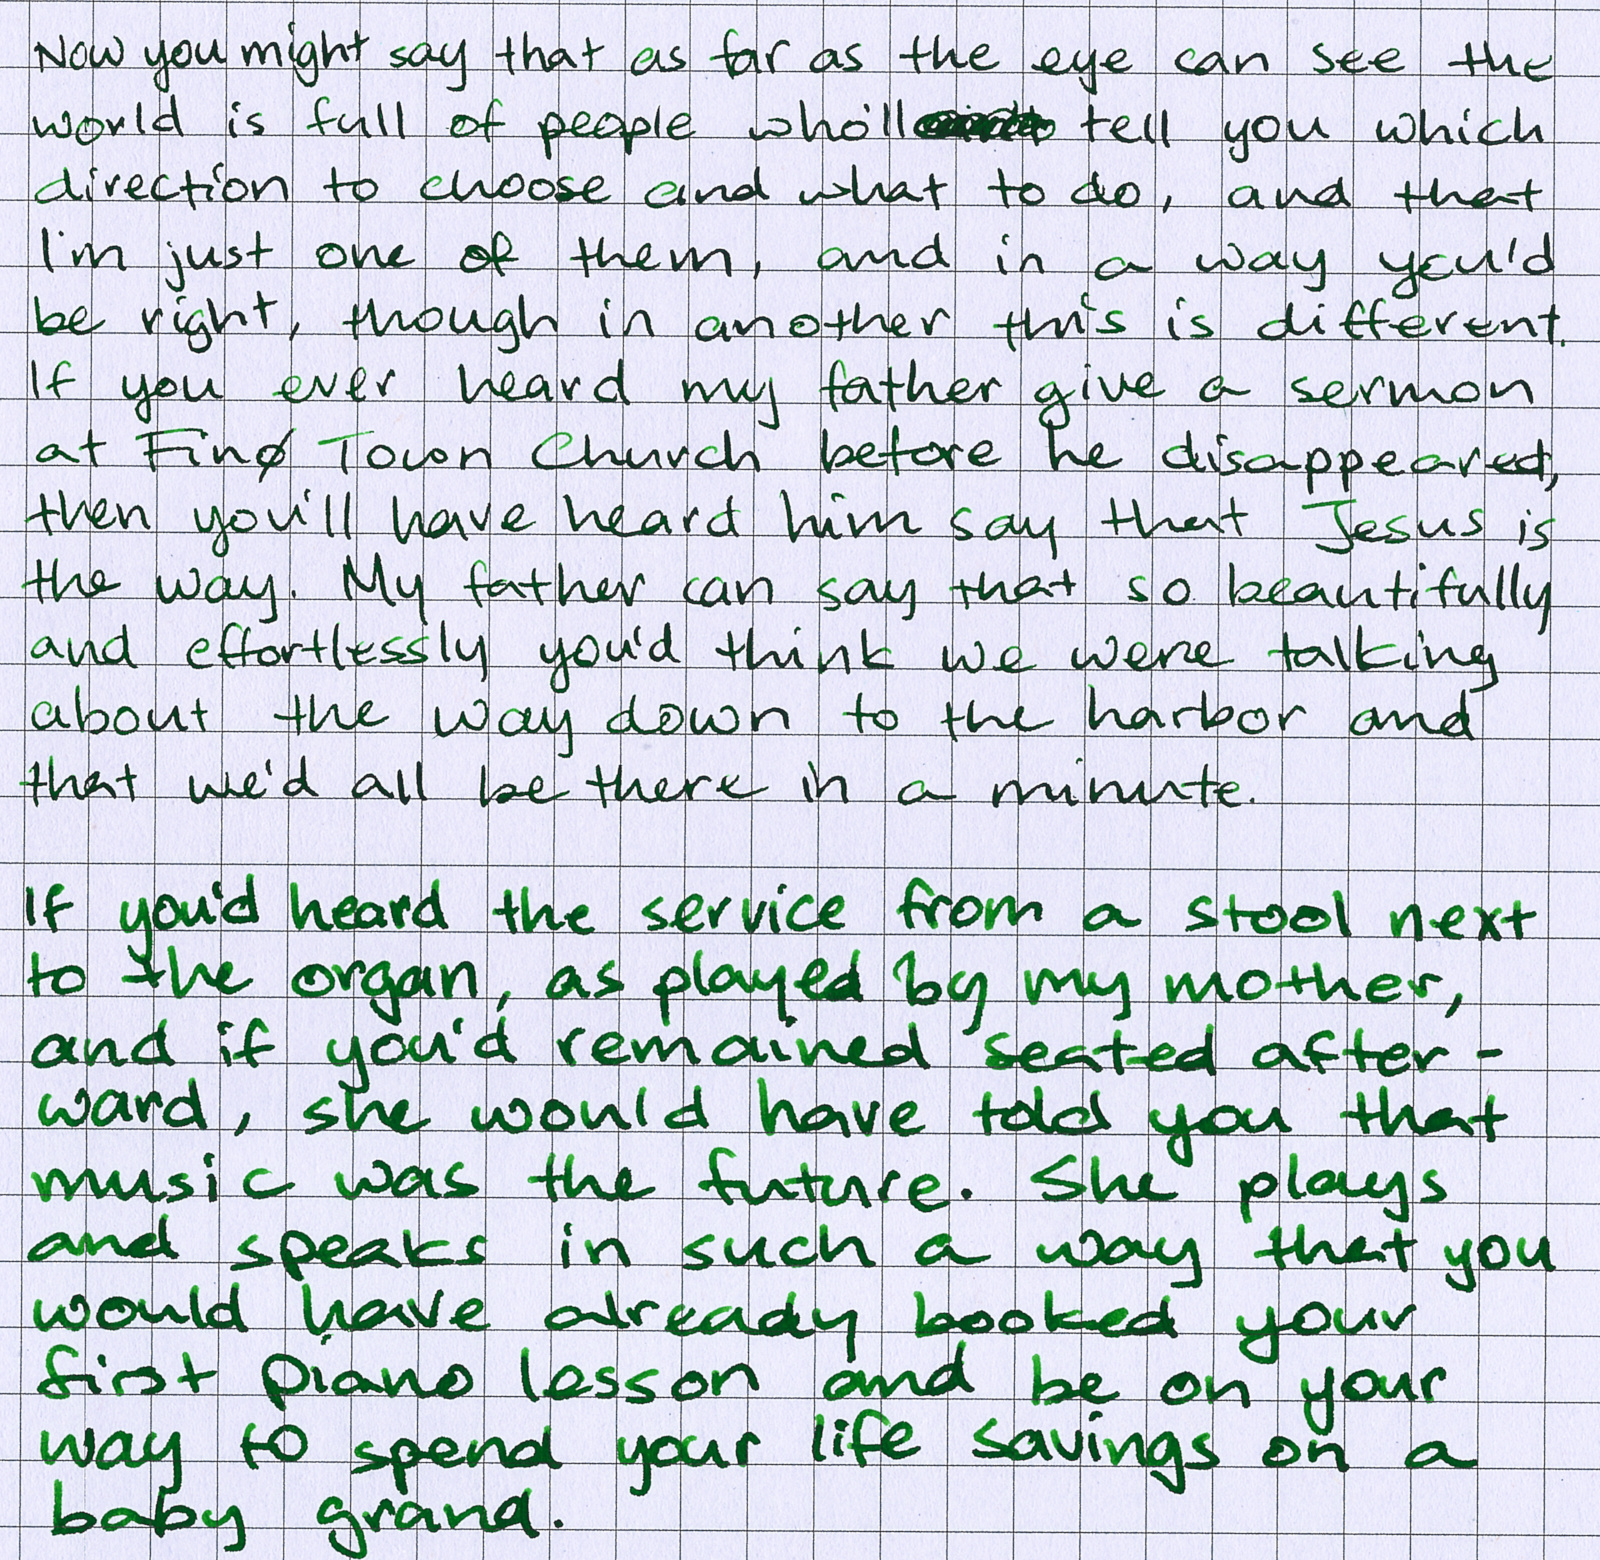 Now you might say that as far as the eye can see the
world is full of people who'll tell you which
direction to choose and what to do, and that
I'm just one of them, and in a way you'd
be right, though in another this is different.
If you ever heard my father give a sermon
at Finø Town Church before he disappeared,
then you'll have heard him say that Jesus is
the way. My father can say that so beautifully
and effortlessly you'd think we were talking
about the way down to the harbor and
that we'd all be there in a minute.
If you'd heard the service from a stool next
to the organ, as played by my mother,
and if you'd remained seated after-
ward, she would have told you that
music was the future. She plays
and speaks in such a way that you
would have already booked your
first piano lesson and be on your
way to spend your life savings on a
baby grand.